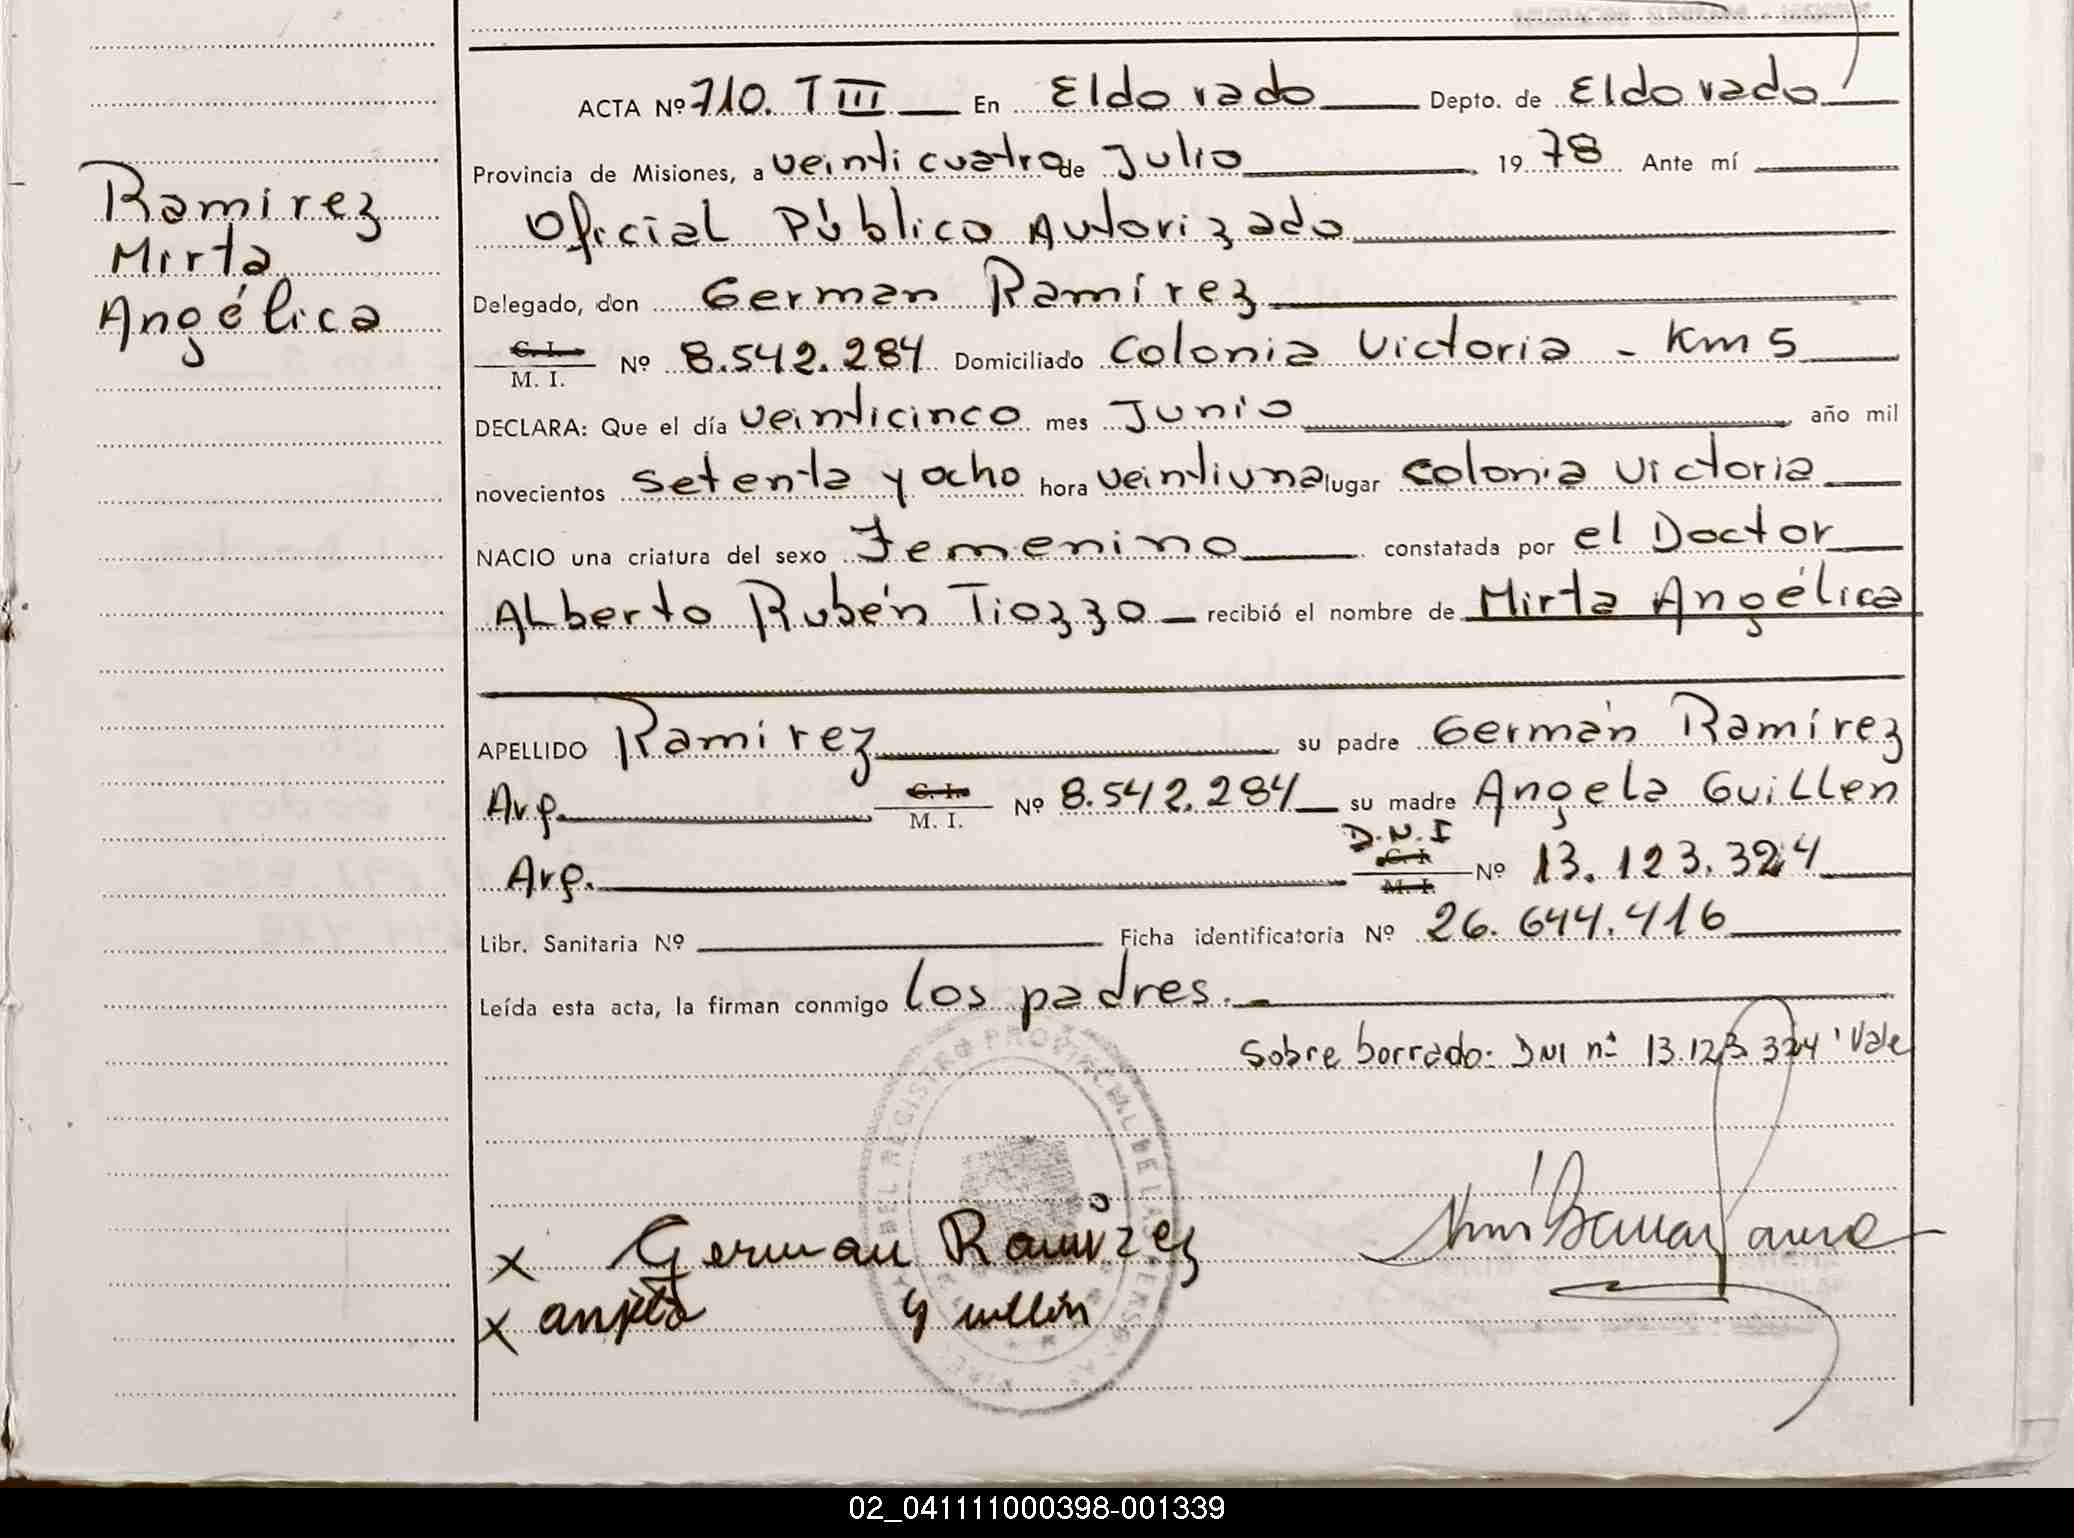 ACTA Nº 710. T III En Eldorado Depto. de Eldorado
Provincia de Misiones, a veinticuatro de Julio 1978 Ante mí
Oficial Público Autorizado
Delegado, don German Ramírez
C. I. M. I. Nº 8.542.284 Domiciliado Colonia Victoria - Km 5
DECLARA: Que el día veinticinco mes Junio año mil
novecientos setenta y ocho hora veintiuna lugar Colonia Victoria
NACIO una criatura del sexo Femenino constatada por el Doctor
Alberto Rubén Tiozzo recibió el nombre de Mirta Angélica
APELLIDO Ramírez su padre Germán Ramírez
Arg. C. I. M. I. Nº 8.542.284 su madre Angela Guillen
Arg. D.N.I C. I. M. I. Nº 13.123.324
Libr. Sanitaria Nº Ficha identificatoria Nº 26.644.416
Leída esta acta, la firman conmigo los padres.-
Sobre borrado: DNI nº 13.123.324 "Vale
x German Ramirez
x anjela Guillen
Ramírez
Mirta
Angélica
02_041111000398-001339